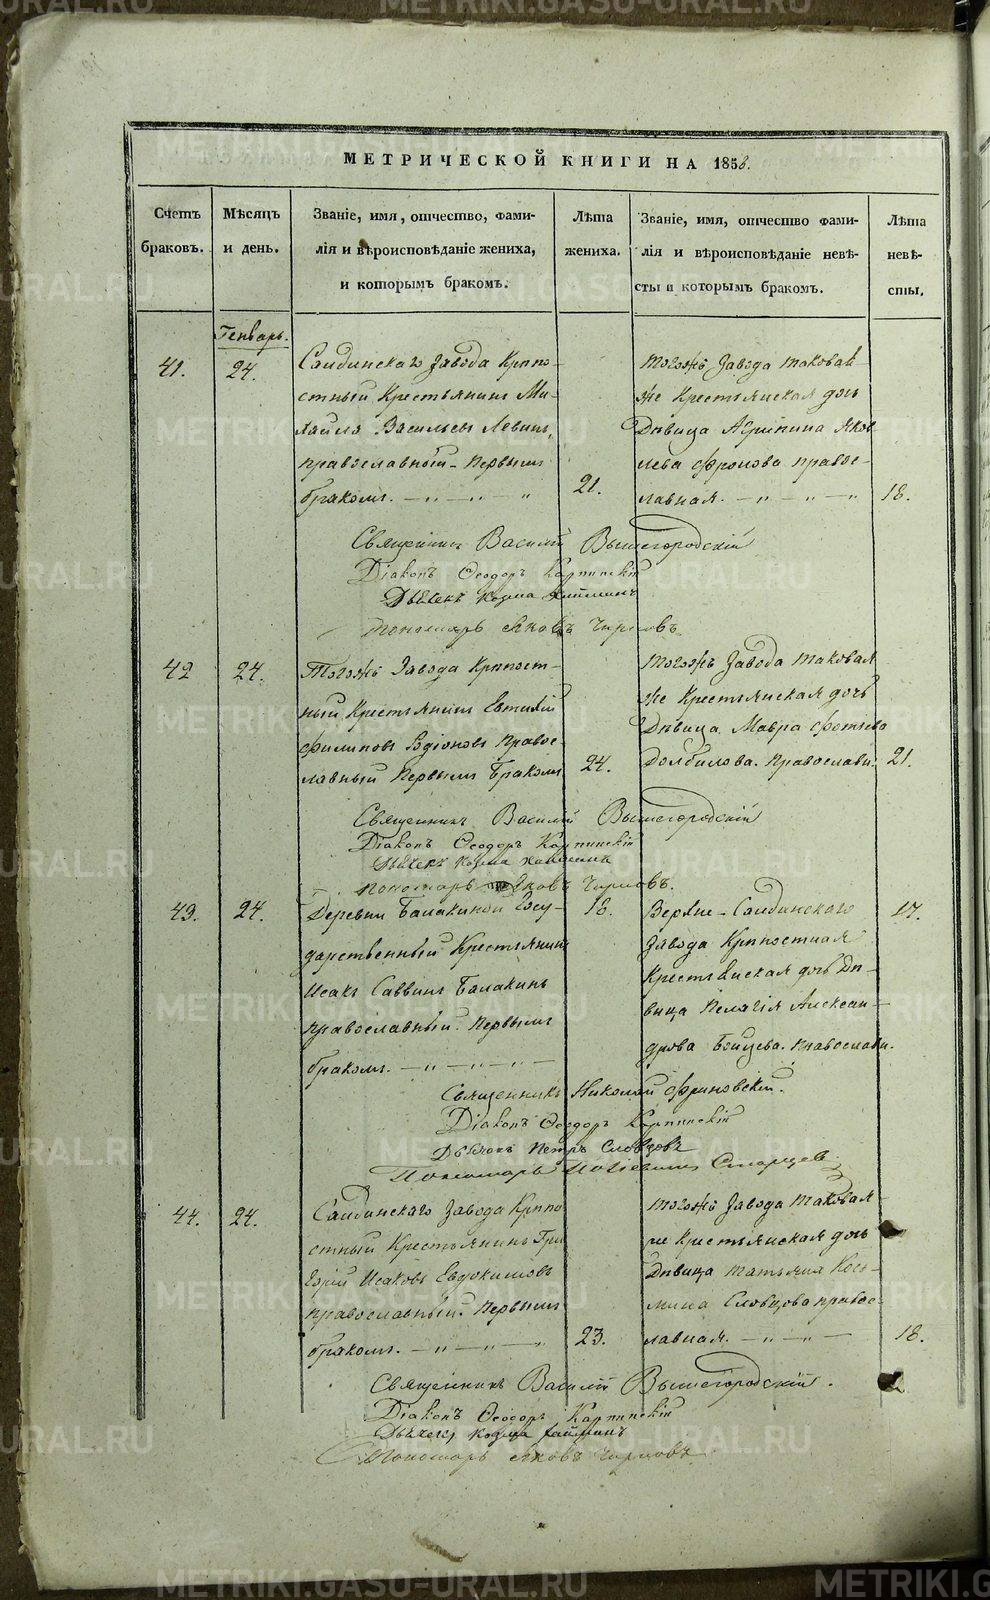 МЕТРИЧЕСКОЙ КНИГИ НА 1856.
Счетъ браковъ.
Мѣсяцъ и день.
Званіе, имя, отчество, фами-
лія и вѣроисповѣданіе жениха,
и которымъ бракомъ.
Лѣта жениха.
Званіе, имя, отчество фами-
лія и вѣроисповѣданіе невѣ-
сты и которымъ бракомъ.
Лѣта невѣ-
сты.
Генварь.
41.
24.
Салдинскаго Завода Крѣпо-
стный Крестьянинъ Ми-
хайло Васильевъ Левинъ,
православный. Первымъ
бракомъ. — „ — „ — „
21.
Тогожъ Завода таковая
же Крестьянская дочь
Дѣвица Агрипина Яков
лева Фролова правос-
лавная. — „ — „ — „
18.
Священникъ Василій Вышегородскій
Діаконъ Ѳеодоръ Карпинскій
Дьячекъ Козма
Пономарь Яковъ
42
24.
Тогожъ Завода Крѣпост-
ный Крестьянинъ Евтихій
Филиповъ Родіоновъ Правос-
лавный Первымъ Бракомъ
24.
Тогожъ Завода таковая
же Крестьянская дочь
Дѣвица Мавра Фотіева
Долбилова. Православн.
21.
Священникъ Василій Вышегородскій
Діаконъ Ѳеодоръ Карпинскій
Дьячекъ Козма
Пономарь Яковъ
43.
24.
Деревни Балакиной Госу-
дарственный Крестьянинъ
Исакъ Саввинъ Балакинъ
православный. Первымъ
бракомъ. — „ — „ —
18.
Верхне-Салдинскаго
Завода Крѣпостная
Крестьянская дочь Дѣ-
вица Пелагія Алексан-
дрова Бойцева. Православн.
17.
Священникъ Николай Флоровскій.
Діаконъ Ѳеодоръ Карпинскій
Дьячокъ Петръ Словцовъ
Пономарь Старцев
44.
24.
Салдинскаго Завода Крѣпо
стный Крестьянинъ Гри
горій Исаковъ Евдокимовъ
православный. Первымъ
бракомъ. — „ — „ — „
23.
Тогожъ Завода таковая-
же Крестьянская дочь
Дѣвица Татьяна Козь-
мина Словцова правос-
лавная. — „ — „ —
18.
Священникъ Василій Вышегородскій.
Діаконъ Ѳеодоръ Карпинскій
Дьячекъ Козма
Пономарь Яковъ
METRIKI.GASO-URAL.RU